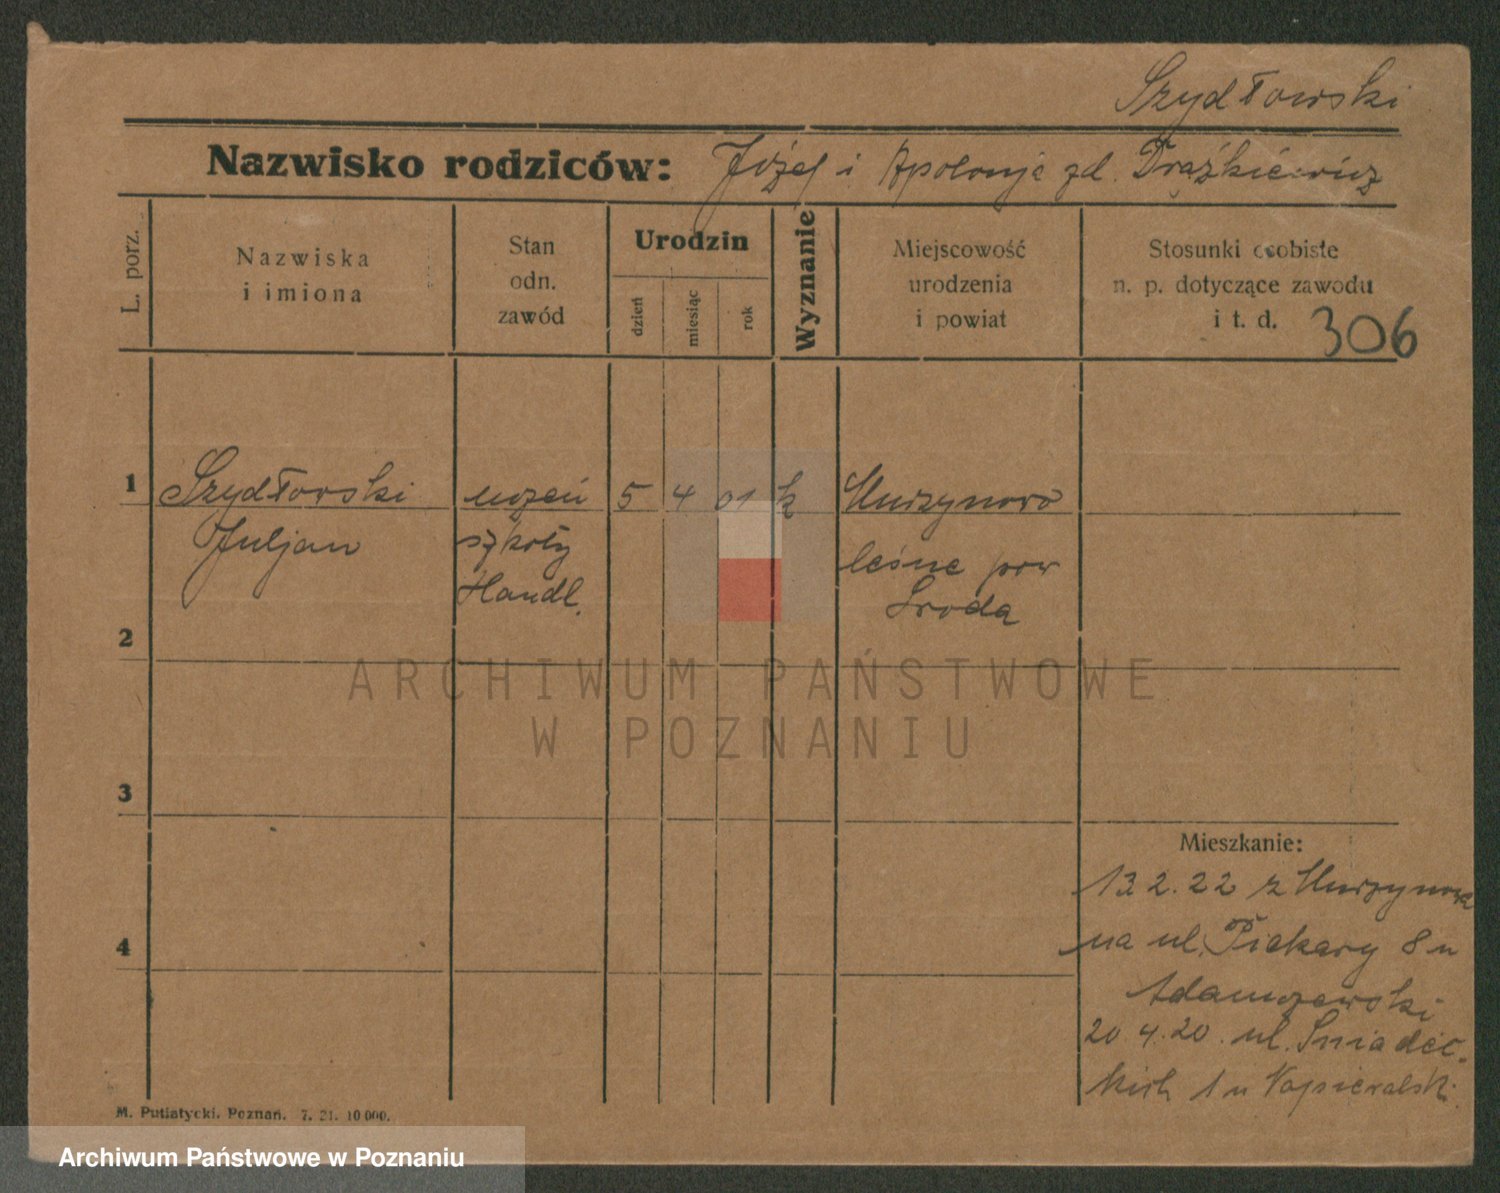 Szydłowski
Nazwisko rodziców: Józef i Apolonje zd. Drążkiewicz
L. porz.
Nazwiska
i imiona
Stan
odn.
zawód
Urodzin
dzień
miesiąc
rok
Wyznanie
Miejscowość
urodzenia
i powiat
Stosunki osobiste
n. p. dotyczące zawodu
i t. d. 306
1 Szydłowski uczeń 5 4 01 k Murzynowo
Juljan szkoły leśne pow
Handl. Środa
2
3
4
Mieszkanie:
13 2. 22 z Murzynowa
na ul. Piekary 8 u
Adamczewski
20. 4. 20. ul. Śniadec-
kich 1 u Napieralski
M. Putiatycki. Poznań. 7. 21. 10 000.
ARCHIWUM PAŃSTWOWE
W POZNANIU
Archiwum Państwowe w Poznaniu